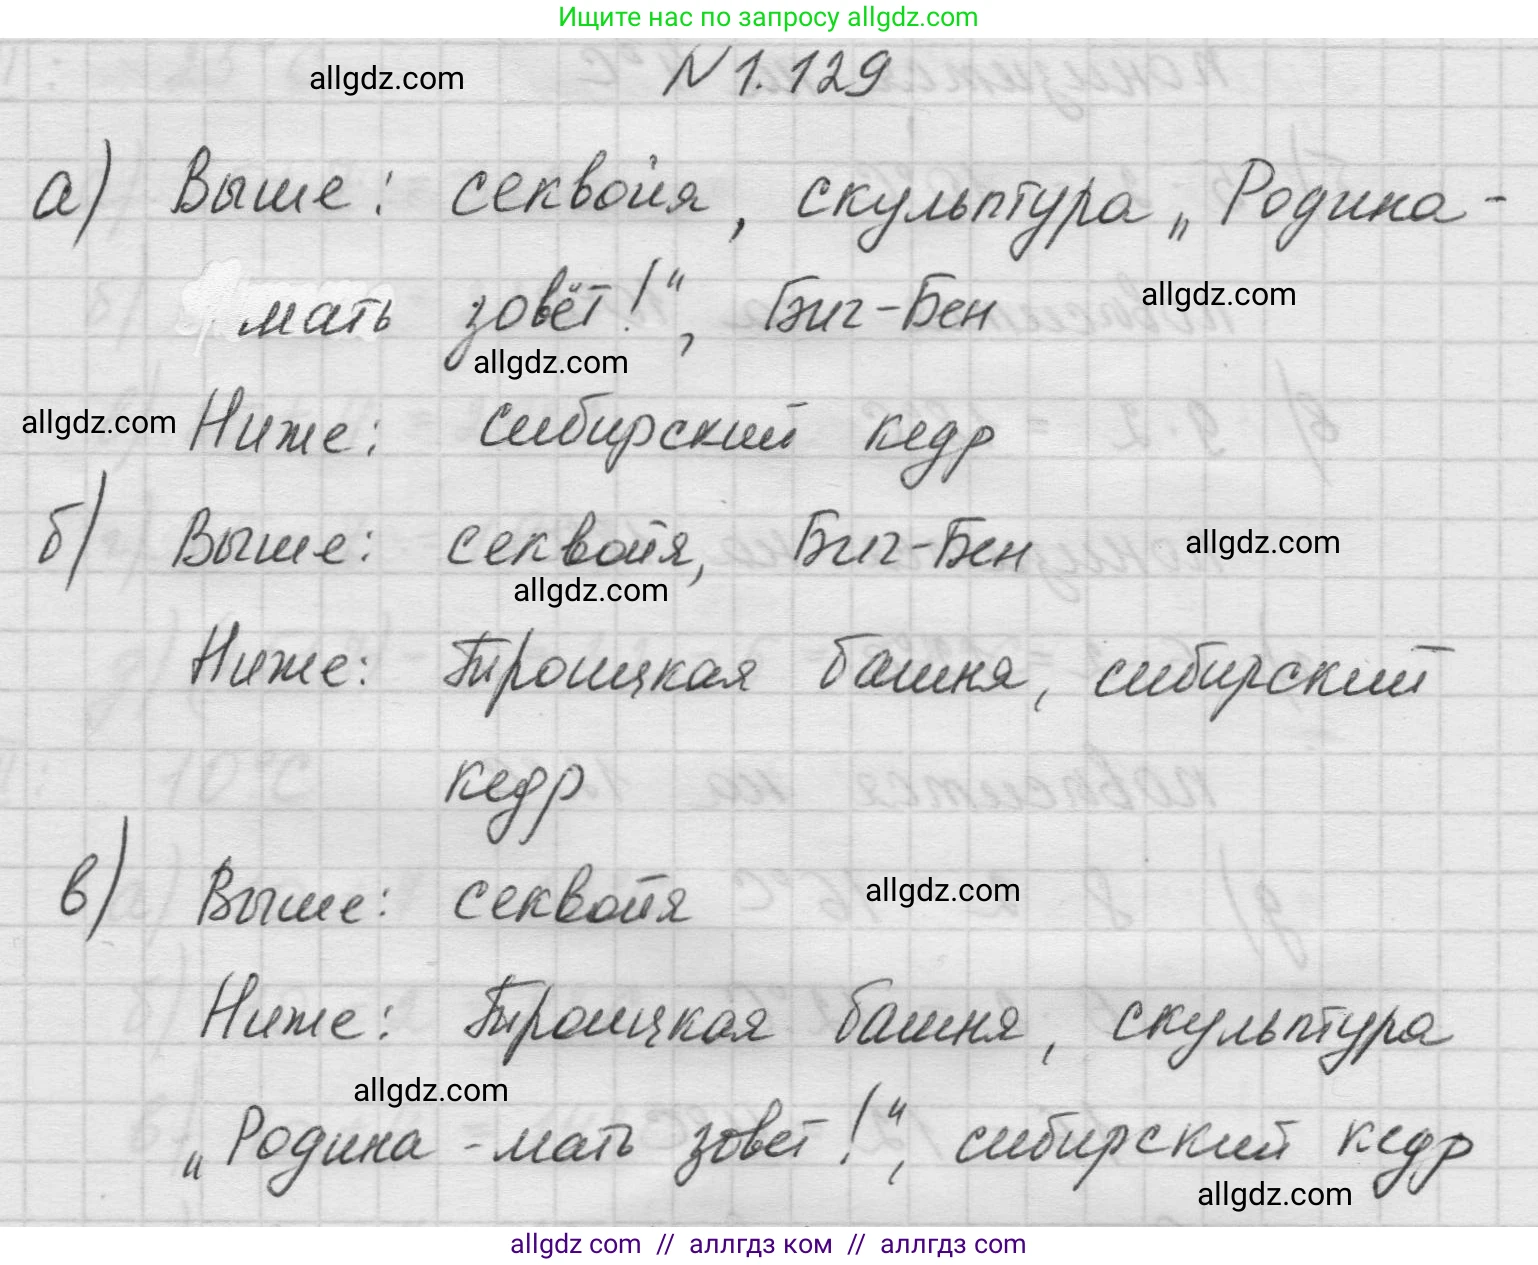 Ищите нас по запросу allgdz.com
allgdz.com N 1.129
а) Выше: секвойя, скульптура „Родина-
мать зовёт!“, Биг-Бен allgdz.com
allgdz.com
allgdz.com Ниже: сибирский кедр
б) Выше: секвойя, Биг-Бен allgdz.com
allgdz.com
Ниже: Троицкая башня, сибирский
кедр
в) Выше: секвойя allgdz.com
Ниже: Троицкая башня, скульптура
allgdz.com
„Родина-мать зовет!“, сибирский кедр
allgdz.com
allgdz com // аллгдз ком // аллгдз com